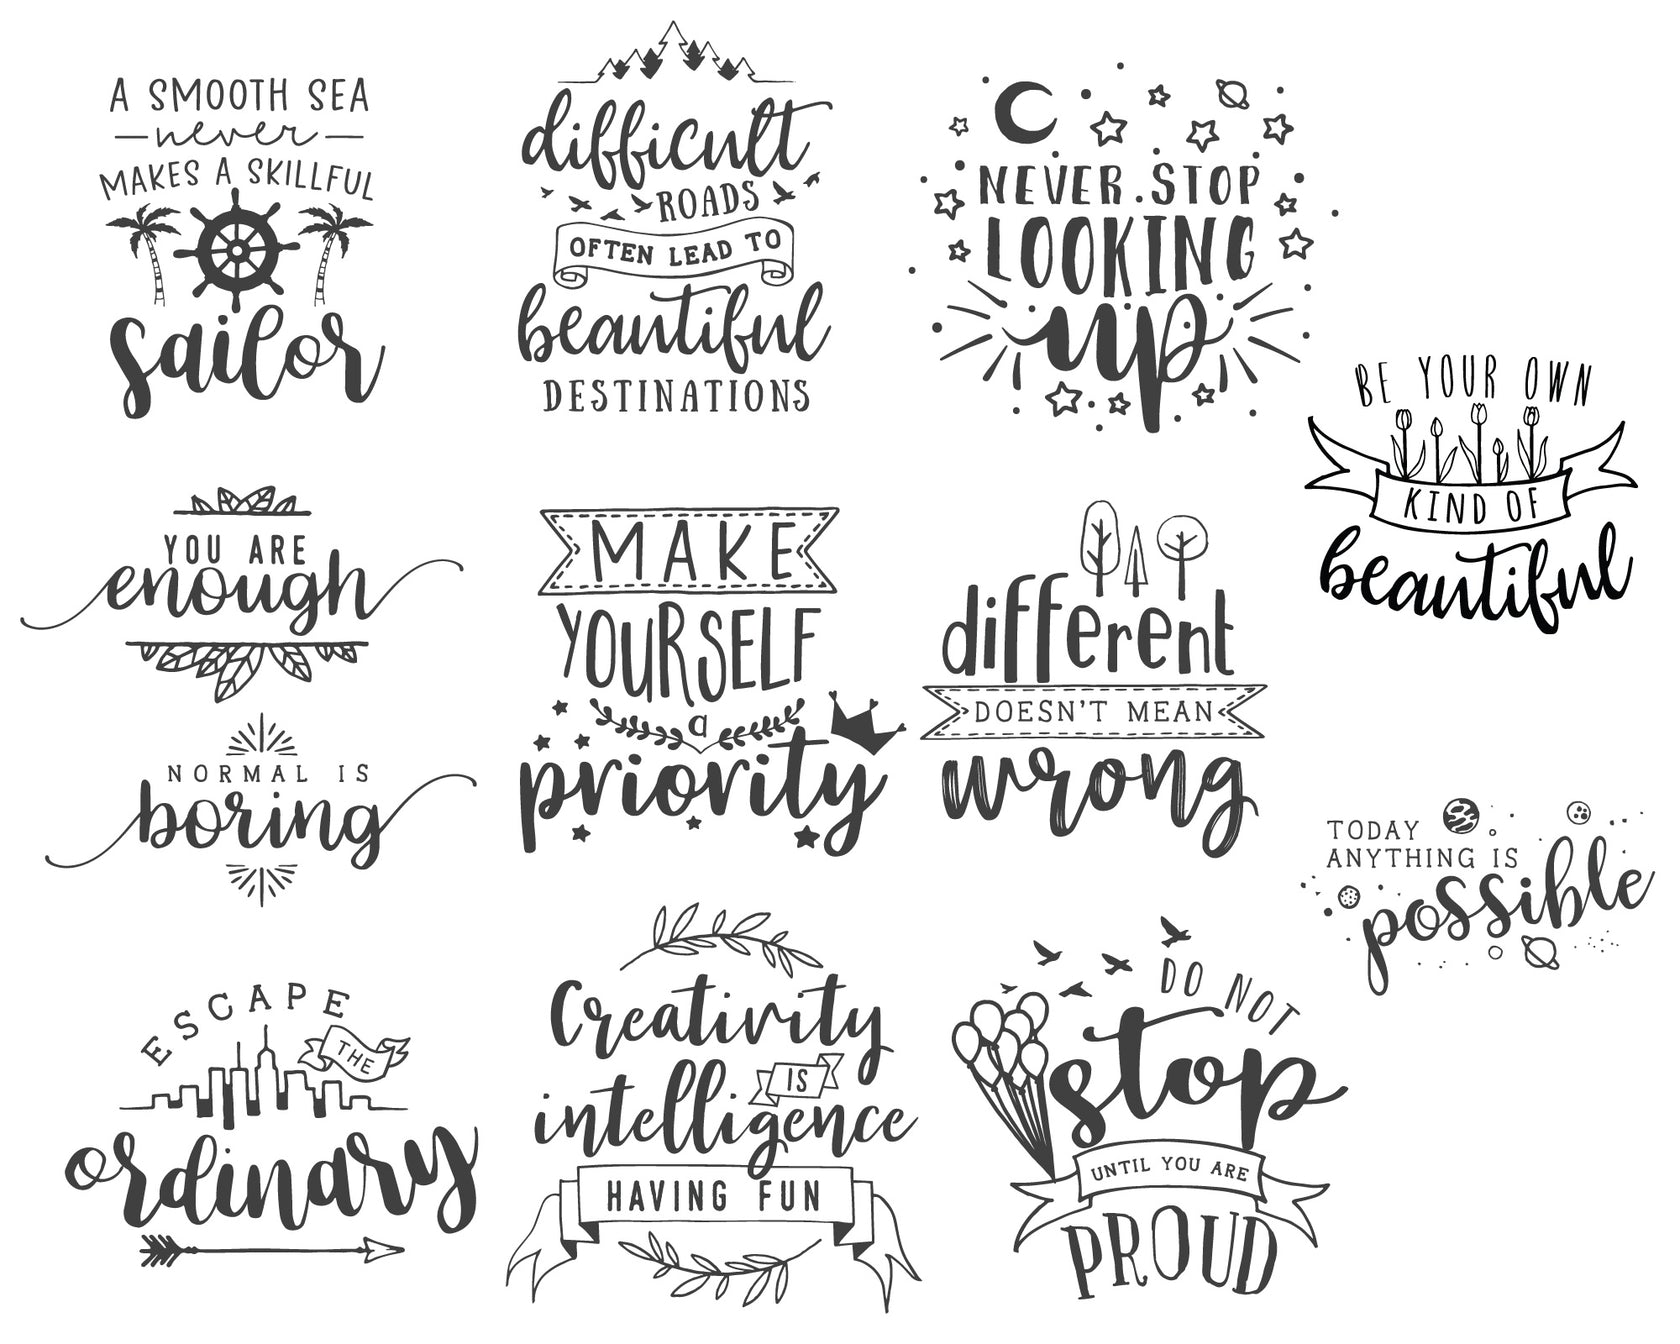 A SMOOTH SEA
never
MAKES A SKILLFUL
sailor
difficult
ROADS
OFTEN LEAD TO
beautiful
DESTINATIONS
NEVER STOP
LOOKING
up
BE YOUR OWN
KIND OF
beautiful
YOU ARE
enough
NORMAL IS
boring
MAKE
YOURSELF
a
priority
different
DOESN'T MEAN
wrong
TODAY
ANYTHING IS
possible
ESCAPE
THE
ordinary
Creativity
IS
intelligence
HAVING FUN
DO NOT
stop
UNTIL YOU ARE
PROUD